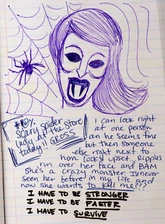 scary spider
lady @ the store
today! GROSS
I can look right
at one person
and he seems fine
but then someone
else right next to
him looks upset. Ripples
run over her face and BAM
she's a crazy monster I never
seen her before in my life and
now she wants to kill me??!
I HAVE TO BE STRONGER
I HAVE TO BE FASTER
I HAVE TO SURVIVE